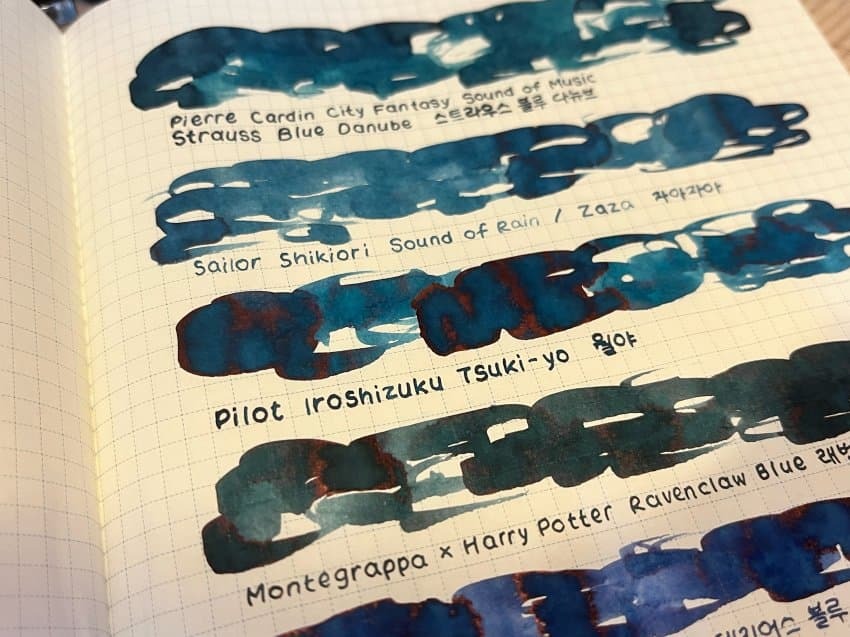 Pierre Cardin City Fantasy Sound of Music
Strauss Blue Danube 스트라우스 블루 다뉴브
Sailor Shikiori Sound of Rain / Zaza 자아자아
Pilot Iroshizuku Tsuki-yo 월야
Montegrappa x Harry Potter Ravenclaw Blue
블루